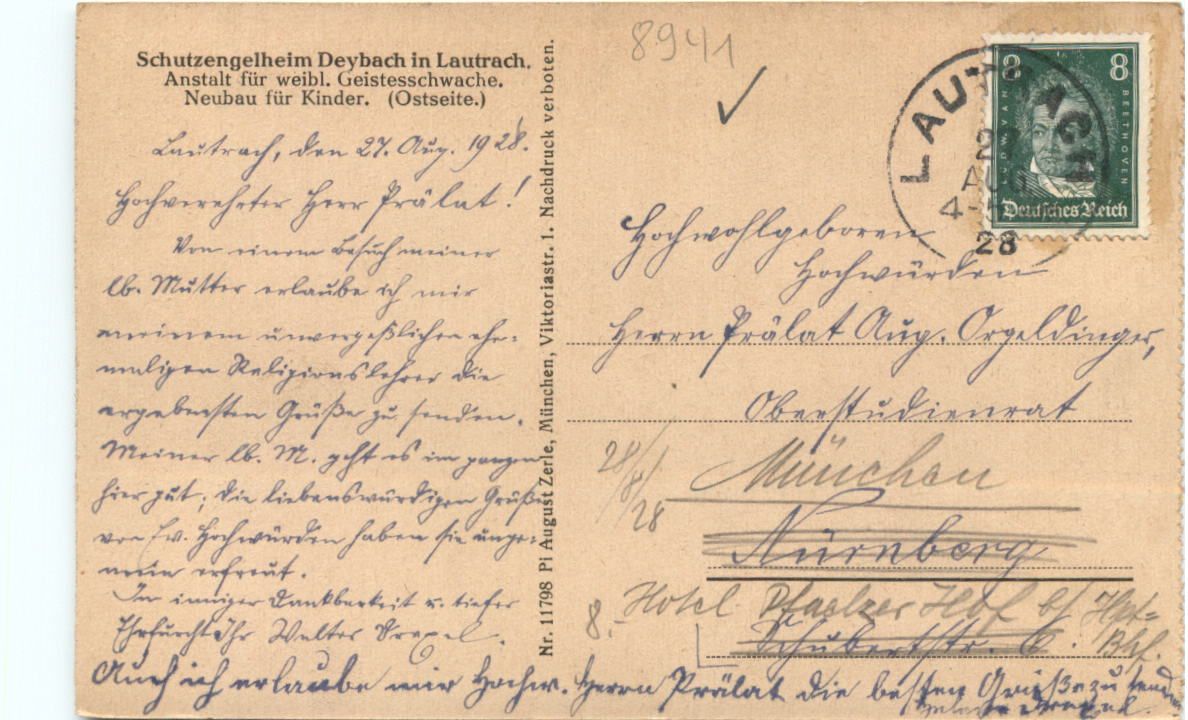 Schutzengelheim Deybach in Lautrach.
Anstalt für weibl. Geistesschwache.
Neubau für Kinder. (Ostseite.)
Lautrach, den 27. Aug. 1928.
Hochverehrter Herr Prälat!
Von einem Besuch meiner
lb. Mutter erlaube ich mir
meinem unvergeßlichen ehe-
maligen Religionslehrer die
ergebensten Grüße zu senden.
Meiner lb. M. geht es im ganzen
hier gut; die liebenswürdigen Grüße
von Ew. Hochwürden haben sie unge-
mein erfreut.
In inniger Dankbarkeit u. tiefer
Ehrfurcht Ihr Walter Drexel.
Auch ich erlaube mir Hochw. Herrn Prälat die besten Grüße zu senden
Drexel.
Nr. 11798 Pi August Zerle, München, Viktoriastr. 1. Nachdruck verboten.
8941
8 8
LUDWIG VAN BEETHOVEN
Deutsches Reich
LAUTRACH
AUG
4
28
Hochwohlgeboren
Hochwürden
Herrn Prälat Aug. Orgeldinger,
Oberstudienrat
28/8/28
München
Nürnberg
8. Hotel Pfaelzer Hof b/ Hpt-
Bhf.
Schubertstr. 6.